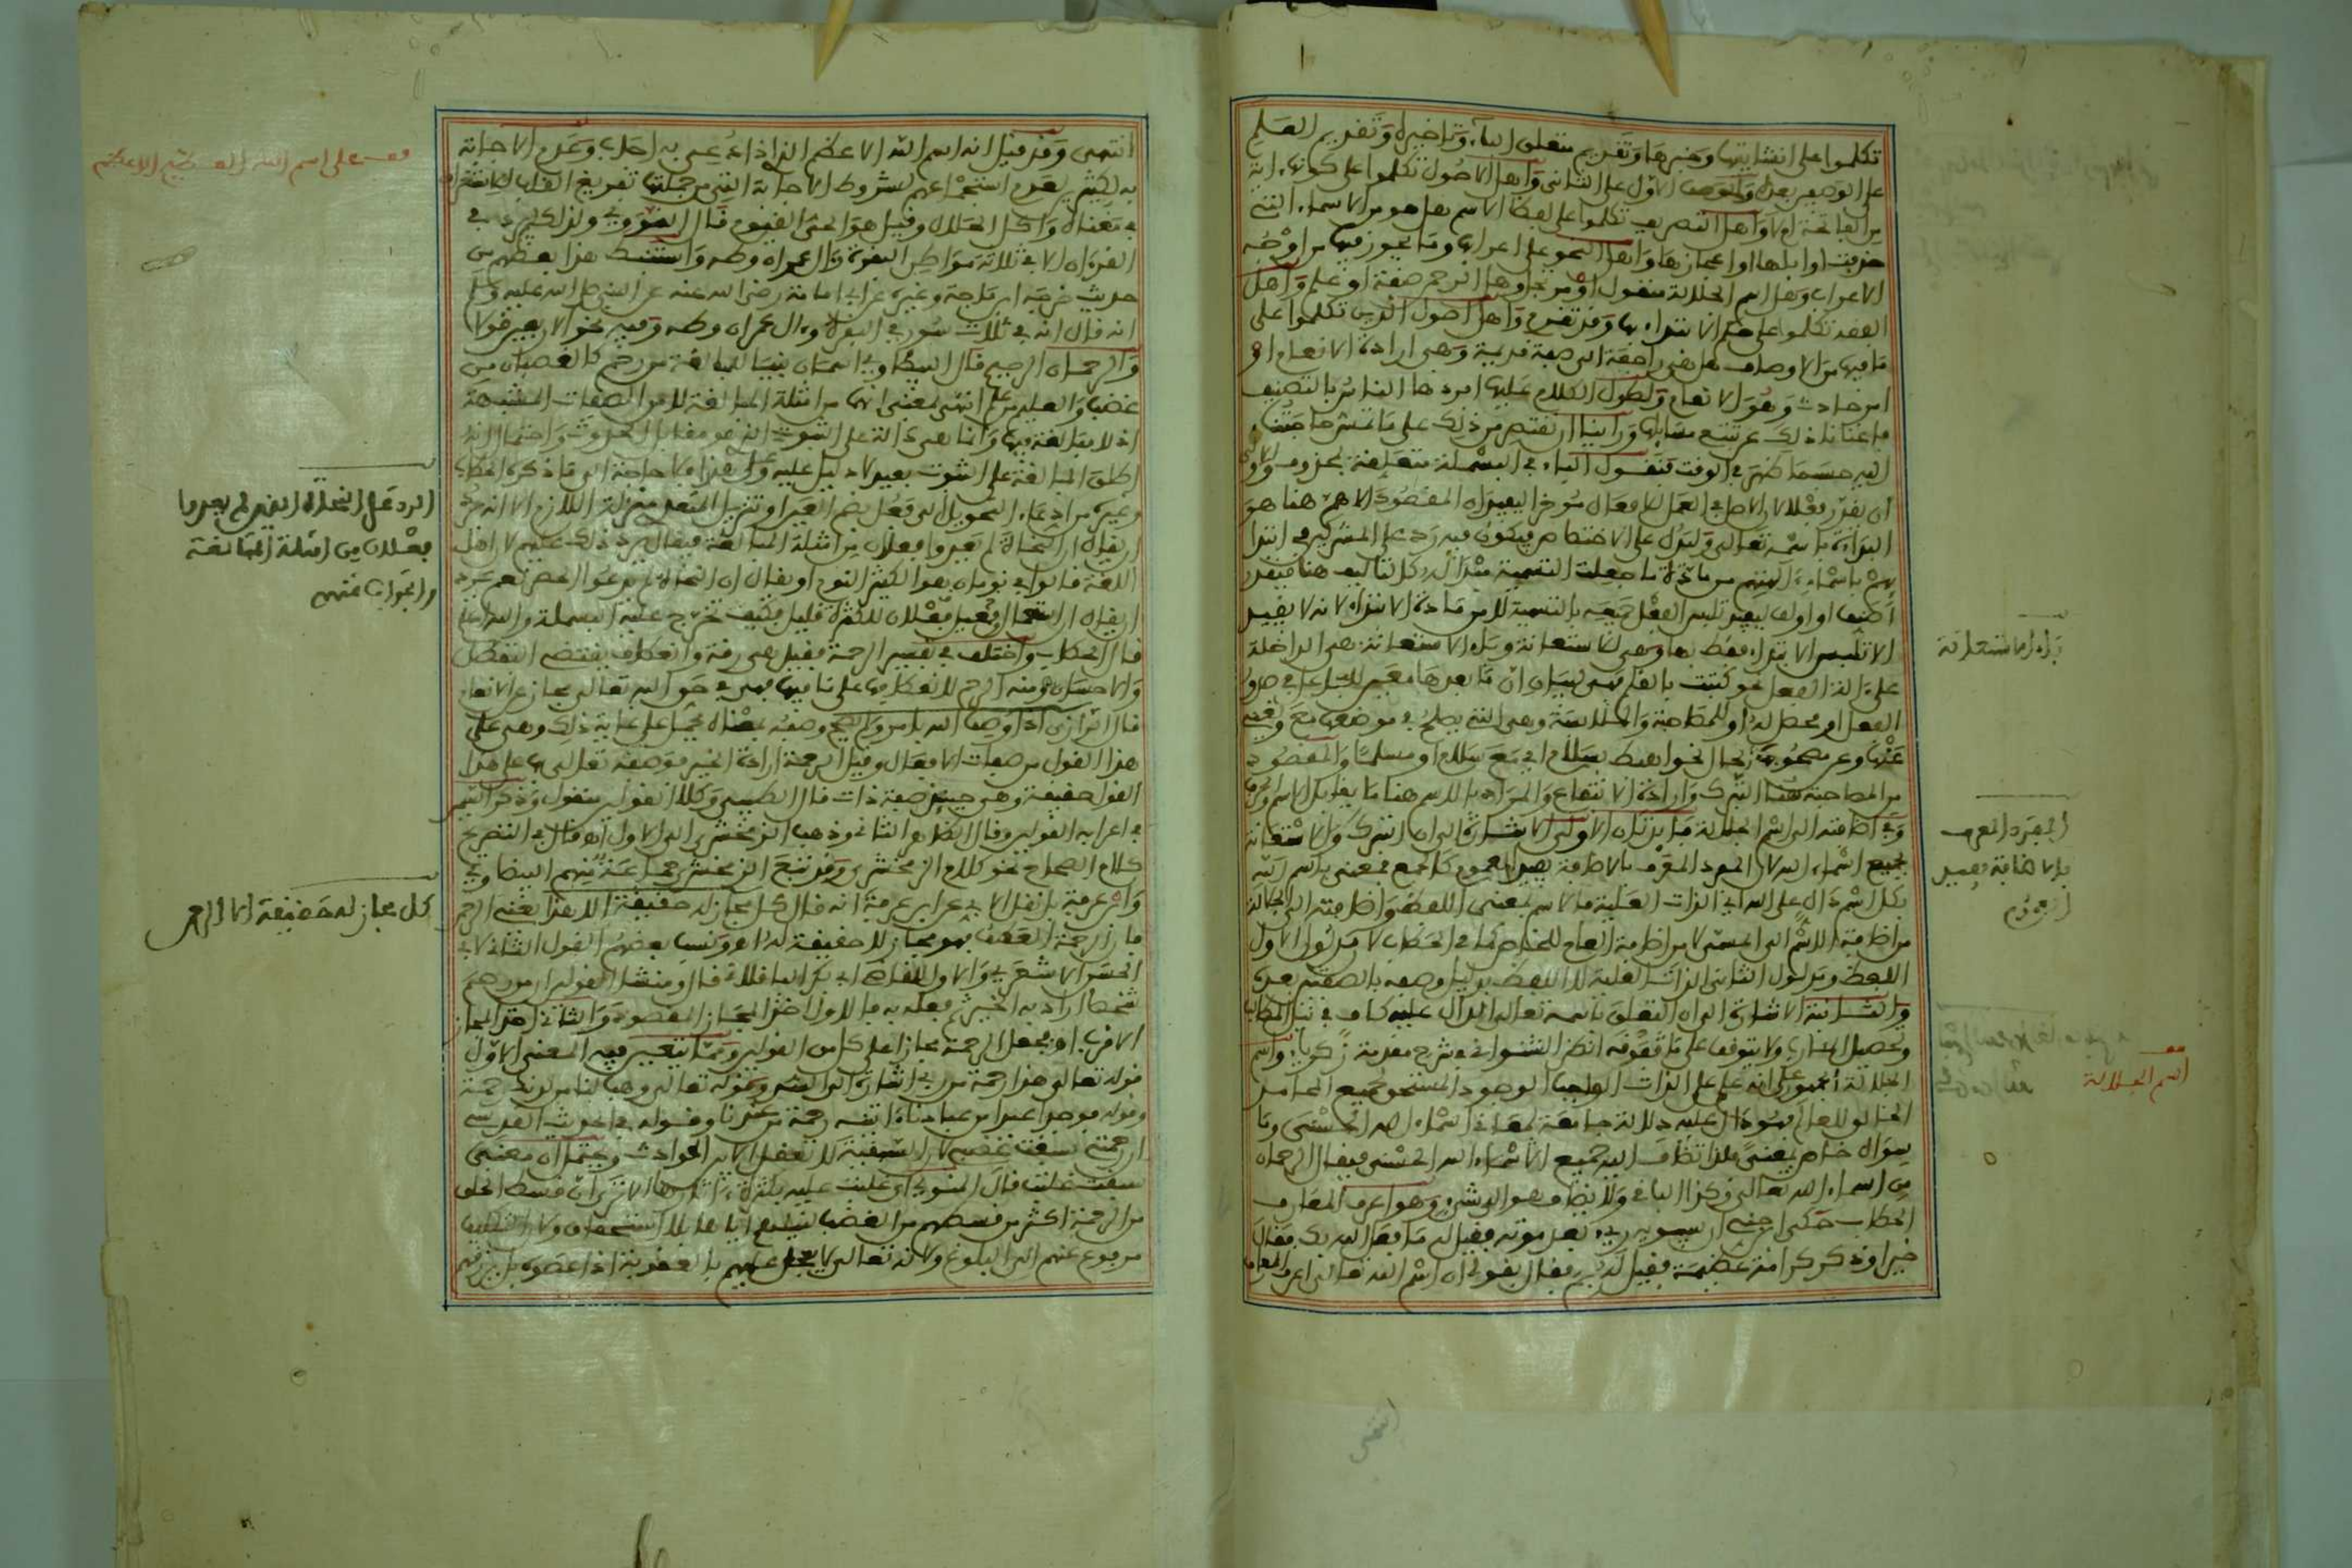 تكلموا على انشائيتها وخبرها وتقديم متعلق الباء وتاخيره وتقديم العلم
على الوصفين بعده والوصف الاول على الثاني واهل الاصول تكلموا على كونها اية
من الفاتحة ام لا واهل التصريف تكلموا على لفظ الاسم هل هو من الاسماء التي
حذفت اوايلها او اعجازها واهل النحو على اعرابها وما يجوز فيها من اوجه
الاعراب وهل اسم الجلالة منقول او مرتجل وهل الرحمن صفة او علم واهل
الفقه تكلموا على حكم الابتداء بها وقد تقدم واهل اصول الدين تكلموا على
ما فيها من الاوصاف هل هي راجعة الى صفة قديمة وهي ارادة الانعام او
امر حادث وهو الانعام ولطول الكلام عليها افردها الناس بالتصنيف
فاغنانا ذلك عن تتبع مسايلها وراينا ان نقتصر من ذلك على ما تمس حاجتنا
اليه حسبما ظهر في الوقت فنقول الباء في البسملة متعلقة بمحذوف والاولى
ان يقدر فعلا لان الاصل في العمل للافعال موخرا ليفيد ان المقصود الاهم هنا هو
البداءة باسمه تعالى وليدل على الاختصاص فيكون فيه رد على المشركين في ابتدا
بهم باسماء الهتهم من مادة ما جعلت التسمية مبتدا له كالتاليف هنا فيقدر
اصنف او اولف ليفيد تلبس الفعل جميعه بالتسمية لا من مادة الابتداء لانه لا يفيد
الا تلبس الابتداء فقط بها وهي للاستعانة وباء الاستعانة هي الداخلة
على الة الفعل نحو كتبت بالقلم
الفعل او محصل له او للمصاحبة والملابسة وهي التي يصلح في موضعها مع ويغني
عنها وعن مصحوبها الحال نحو اهبط بسلام اي مع سلام او مسلما والمقصود
من المصاحبة هنا التبرك وارادة الانتفاع والمراد بالاسم هنا ما يقابل
وفي اضافته الى اسم الجلالة فايدتان الاولى الاشارة الى ان التبرك والاستعانة
بجميع اسماء الله لان المفرد المعرف بالاضافة يفيد العموم كالجمع فمعنى باسم الله
بكل اسم دال على الله اي الذات العلية فالاسم بمعنى اللفظ واضافته الى الجلالة
من اضافة الاسم الى المسمى لا من اضافة العام للخاص كما في الحطاب لان مدلول الاول
اللفظ ومدلول الثاني الذات العلية لا اللفظ بدليل وصفه بالصفتين بعده
والثانية الاشارة الى ان التعلق باسمه تعالى الدال عليه كاف في نيل المطالب
وتحصيل المئارب ولا يتوقف على ما فوقه انظر الشنواني في شرح مقدمة زكرياء واسم
الجلالة اجمعوا على انه علم على الذات الواجب الوجود المستحق لجميع المحامد
الخالق للعالم فهو دال عليه دلالة جامعة لمعاني اسماء الله الحسنى وما
سواه خاص بمعنى فلذا تضاف اليه جميع الاسماء الله الحسنى فيقال الرحمان
من اسماء الله تعالى وكذا الباقي ولا يضاف هو الى شيء وهو اعرف المعارف
الحطاب حكى ابن جني ان سيبويه ريء بعد موته فقيل له ما فعل الله بك فقال
خيرا وذكر كرامة عظيمة فقيل له بم فقال بقولي ان اسم الله تعالى اعرف المعارف
باء الاستعانة
المفرد المعرف
بالاضافة يفيد
العموم
اسم الجلالة
انتهى وقد قيل انه اسم الله الاعظم الذي اذا دعي به اجاب وعدم الاجابة
به لكثير لعدم استجماعهم لشروط الاجابة التي من جملتها تفريغ القلب للاستغراق
في معناه واكل الحلال وقيل هو الحي القيوم قال النووي ولذا لم يذكر في
القرءان الا في ثلاثة مواطن البقرة وءال عمران وطه واستنبط هذا بعضهم من
حديث خرجه ابن ماجة وغيره عن ابي امامة رضي الله عنه عن النبي صلى الله عليه وسلم
انه قال انه في ثلاث سور في البقرة وءال عمران وطه وفيه نحو الاربعين قولا
والرحمان الرحيم قال البيضاوي اسمان بنيا للمبالغة من رحم كالغضبان من
غضب والعليم من علم انتهى يعني انها من امثلة المبالغة لا من الصفات المشبهة
اذ لا مبالغة فيها وانما هي دالة على الثبوت الذي هو مقابل الحدوث واحتمال انه
اطلق المبالغة على الثبوت بعيد لا دليل عليه وعلى هذا فلا حاجة الى ما ذكره الحطاب
وغيره من ادعاء التحويل الى فعل بضم العين او تنزيل المتعدي منزلة اللازم الا انه
يقال ان النحاة لم يعدوا فعلان من امثلة المبالغة فيقال يرد ذلك عليهم لان اهل
اللغة قالوا في نومان هو الكثير النوم او يقال ان النحاة لم يدعوا الحصر نعم يرد
ان يقال ان استعمال فعيل وفعلان للكثرة قليل فكيف تخرج عليه البسملة والله اعلم
قال الحطاب واختلف في تفسير الرحمة فقيل هي رقة وانعطاف يقتضي التفضل
والاحسان ومنه الرحم لانعطافها على ما فيها فهي في حق الله تعالى مجاز عن الانعام
قال الرازي اذا وصف الله بامر ولم يصح وصفه بمعناه يحمل على غاية ذلك وهي على
هذا القول من صفات الافعال وقيل الرحمة ارادة الخير فوصفه تعالى بها على هذا
القول حقيقة وهي حينئذ صفة ذات قال الطيبي وكلا القولين منقول وذكر السمين
في اعرابه القولين وقال الظاهر الثاني وذهب الزمخشري الى الاول اهـ وقال في التصريح
كلام الصحاح نحو كلام الزمخشري وقد تبع الزمخشري جماعة منهم البيضاوي
وابن عرفة بل نقل الابي عن ابن عرفة انه قال كل مجاز له حقيقة الا هذا يعني الرحمن
فان الرحمة العطف فهو مجاز لا حقيقة له اهـ ونسب بعضهم القول الثاني لابي
الحسن الاشعري والاول للقاضي ابي بكر الباقلاني قال ومنشا القولين ان من رحم
شخصا اراد به الخير ثم فعله به فالاول اخذ المجاز المقصود والثاني اخذ المجاز
الاقرب اهـ فجعل الرحمة مجازا على كل من القولين ومما يتعين فيه المعنى الاول
قوله تعالى هذا رحمة من ربي اشارة الى السد وقوله تعالى وهب لنا من لدنك رحمة
وقوله فوجدا عبدا من عبادنا ءاتيناه رحمة من عندنا وقوله في الحديث القدسي
ان رحمتي سبقت غضبي لان السبقية لا تعقل الا بين الحوادث ويحتمل ان معنى
سبقت غلبت قال المنوي اي غلبت عليه بكثرة ءاثارها الا ترى ان قسط الخلق
من الرحمة اكثر من قسطهم من الغضب لنيلهم اياها بلا استحقاق ولان التكليف
مرفوع عنهم الى البلوغ ولانه تعالى لا يعجل عليهم بالعقوبة اذا عصوه بل يرزقهم
قف على اسم الله العظيم الاعظم
الرد على النحاة الذين لم يعدوا
فعلان من امثلة المبالغة
والجواب عنهم
كل مجاز له حقيقة الا الرحمن